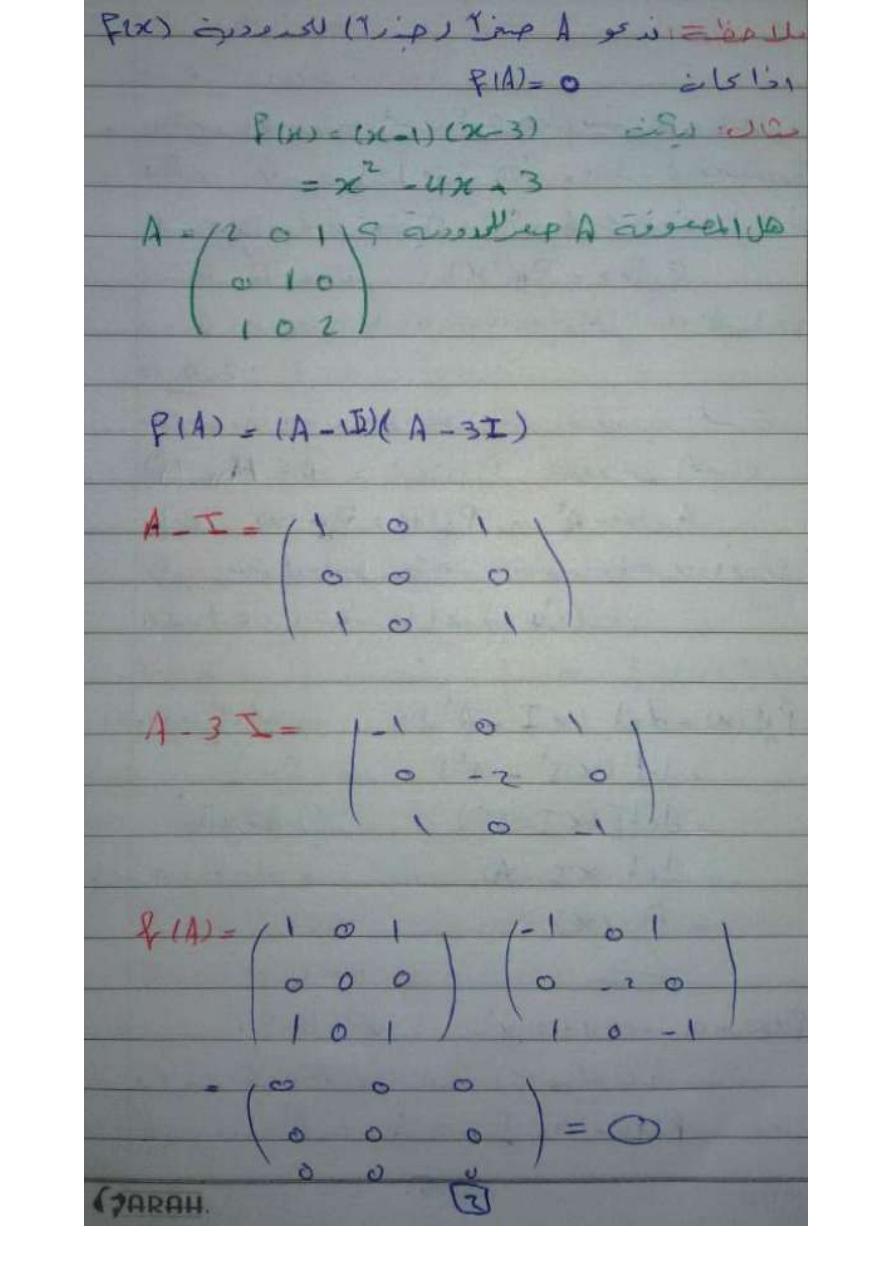 ملاحظة: ندعو A صفراً (جذراً) للحدودية f(x)
اذا كان f(A) = 0
مثال: ليكن f(x) = (x-1)(x-3)
= x² - 4x + 3
هل المصفوفة A صفر للحدودية ؟ A = (2 0 1
0 1 0
1 0 2)
f(A) = (A - 1I)(A - 3I)
A - I = (1 0 1
0 0 0
1 0 1)
A - 3I = (-1 0 1
0 -2 0
1 0 -1)
f(A) = (1 0 1 (-1 0 1
0 0 0 0 -2 0
1 0 1) 1 0 -1)
= (0 0 0
0 0 0) = 0
0 0 0
FARAH. 2